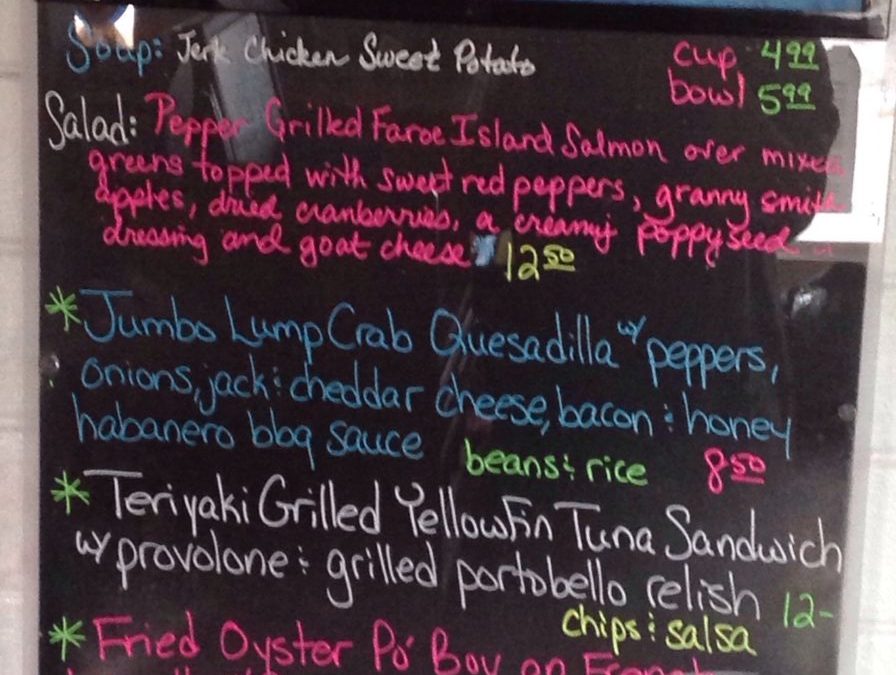 Soup: Jerk Chicken Sweet Potato cup 4.99
bowl 5.99
Salad: Pepper Grilled Faroe Island Salmon over mixed
greens topped with sweet red peppers, granny smith
apples, dried cranberries, a creamy poppyseed
dressing and goat cheese 12.50
* Jumbo Lump Crab Quesadilla w/ peppers,
onions, jack & cheddar cheese, bacon & honey
habanero bbq sauce beans & rice 8.50
* Teriyaki Grilled Yellowfin Tuna Sandwich
w/ provolone & grilled portobello relish 12-
chips & salsa
* Fried Oyster Po' Boy on French